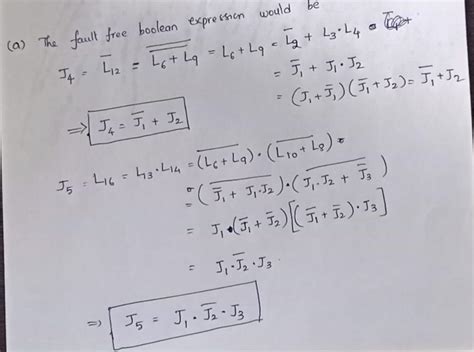 (a) The fault free boolean expression would be
J₄ = L̅₁₂ = \overline{\overline{L₆ + L₉}} = L₆ + L₉ = L̅₂ + L₃·L₄
= J̅₁ + J₁·J₂
= (J₁ + J̅₁)(J̅₁ + J₂) = J̅₁ + J₂
⇒ J₄ = J̅₁ + J₂
J₅ = L₁₆ = L₁₃·L₁₄ = \overline{(L₆ + L₉)}·\overline{(L₁₀ + L₈)}
= \overline{(J̅₁ + J₁·J₂)}·\overline{(J₁·J₂ + J̅₃)}
= J₁·(J̅₁ + J̅₂)[(J̅₁ + J̅₂)·J₃]
= J₁·J̅₂·J₃
⇒ J₅ = J₁·J̅₂·J₃